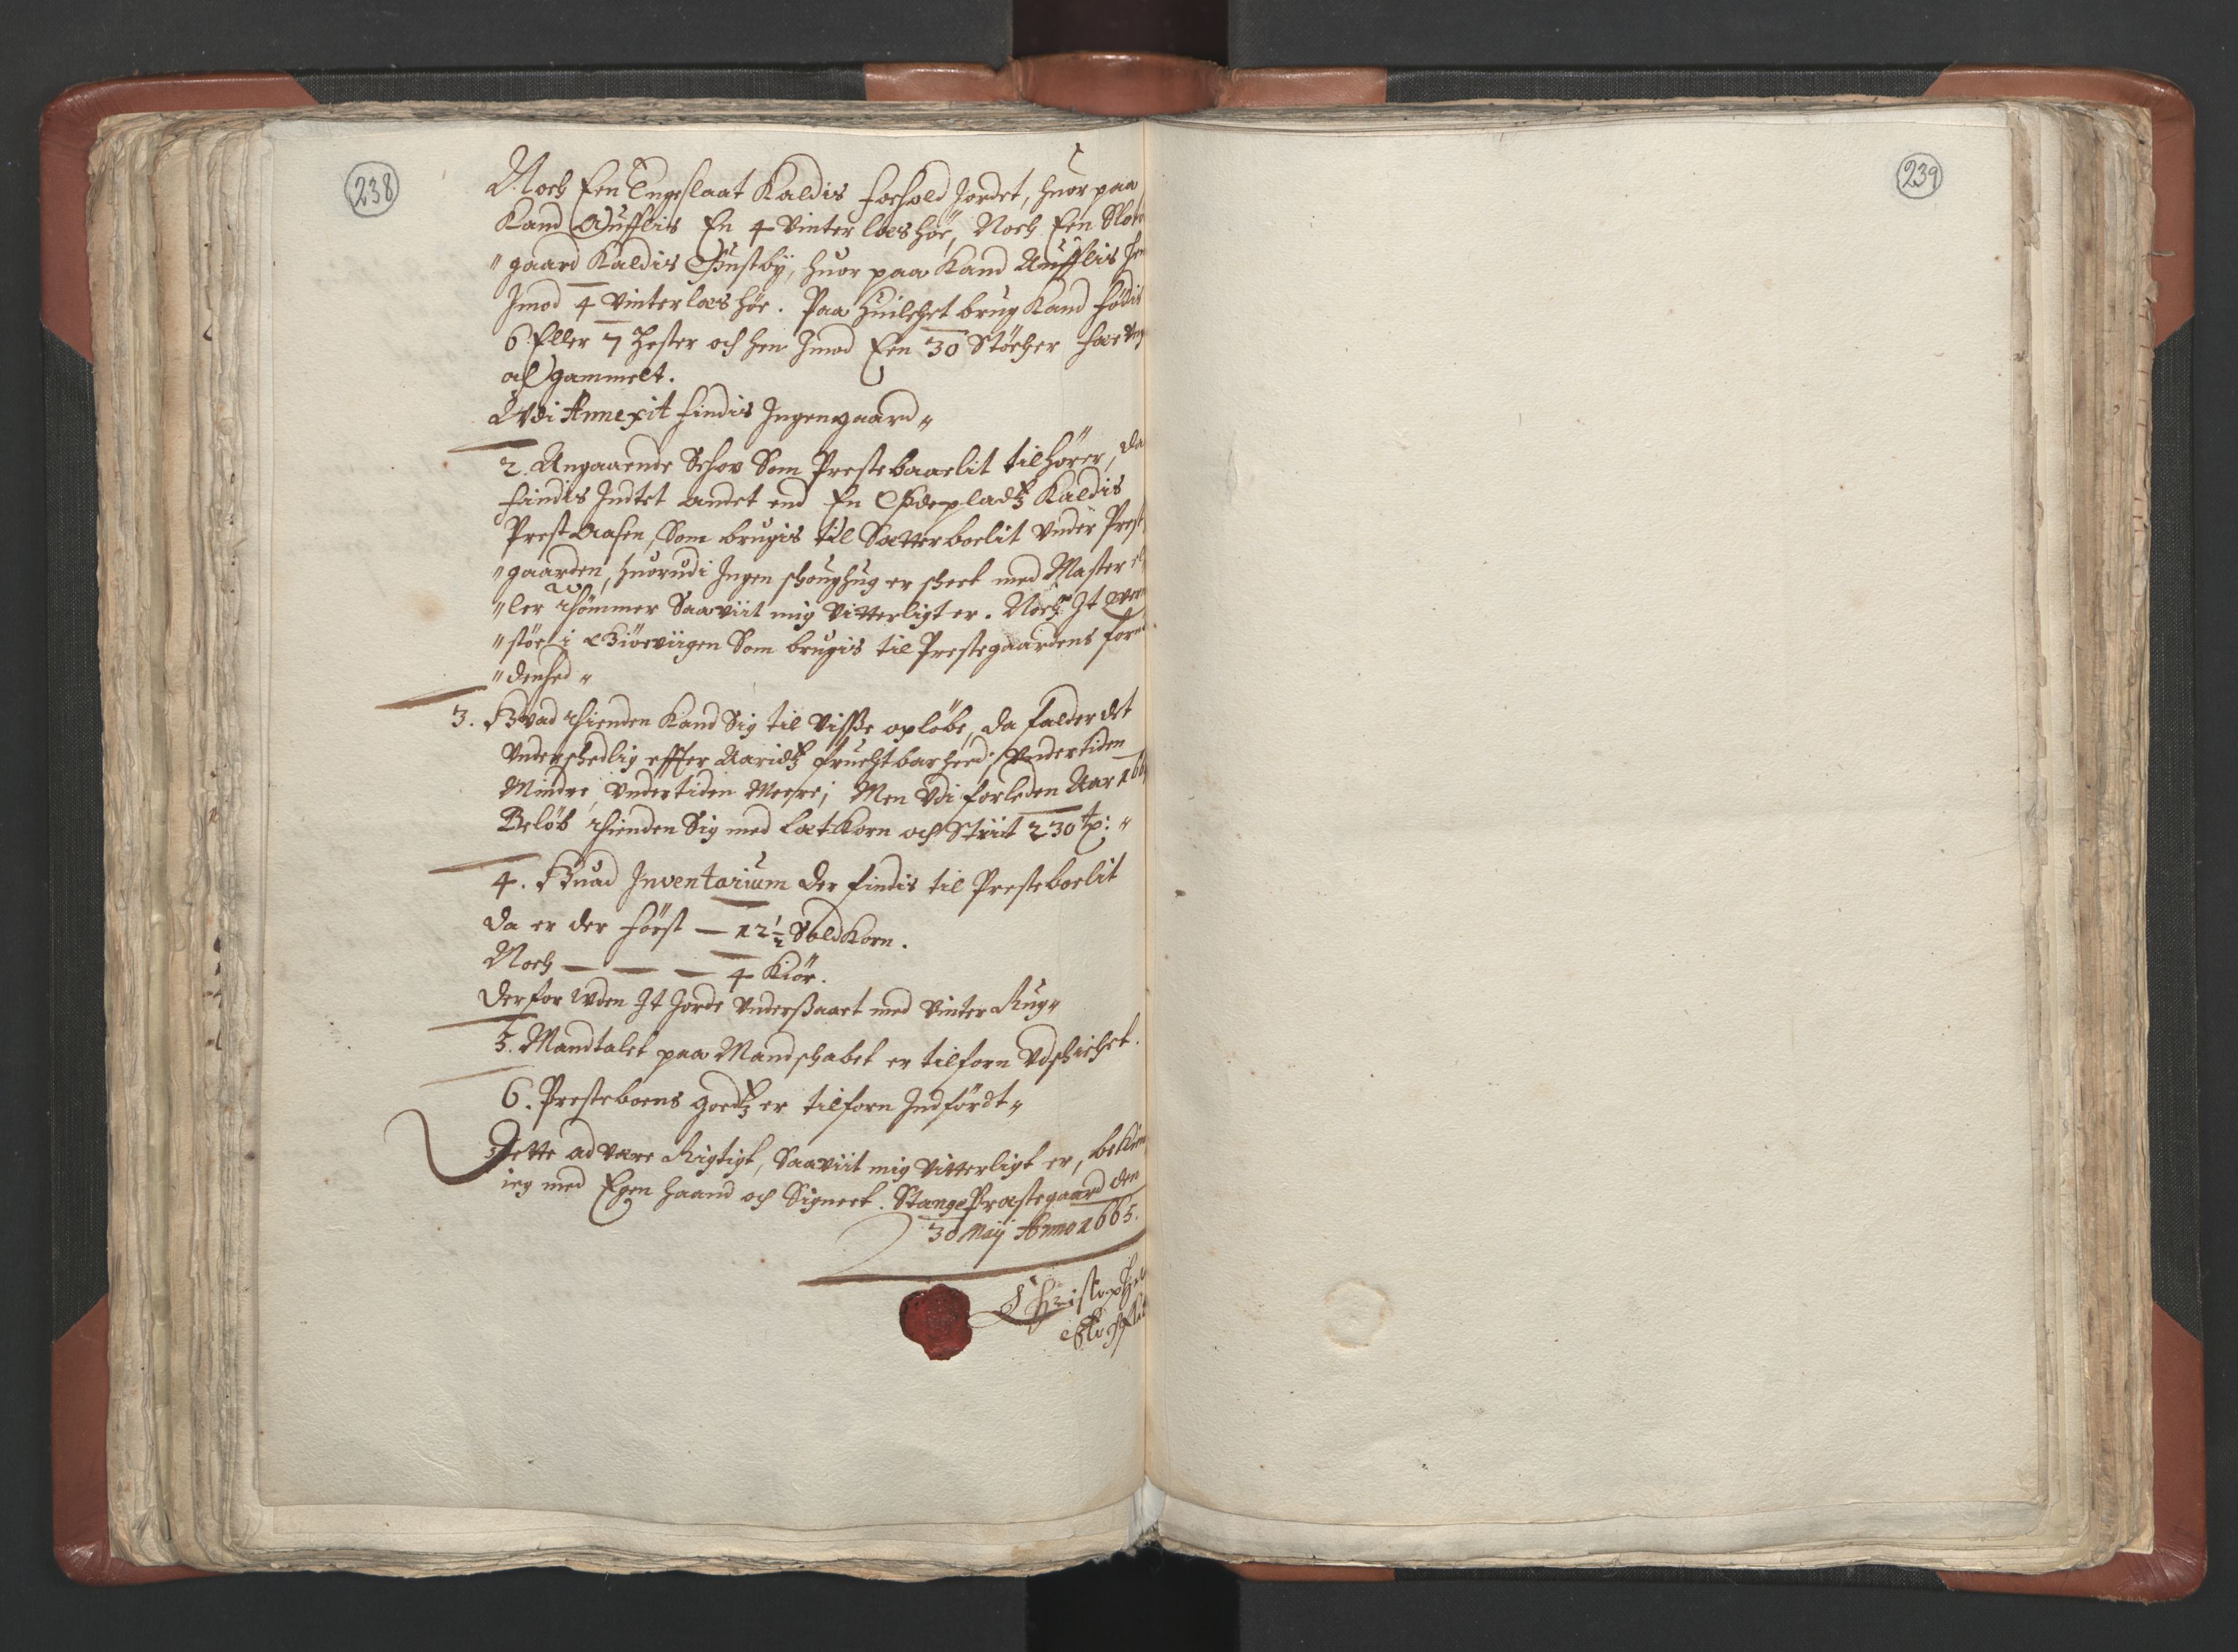 238
Noch Een Engeslaat Kaldis Foehold Jordet, huor paa
Kand Aufflis En 4 Vinter læs høe, Noch Een
"gaard Kaldis huor paa Kand Aufflis
Imod 4 Vinterlæs høe. Paa huilchet brug Kand Fødis
6 Eller 7 Hester och hen Imod Een 30 Støcher Fæ
och gammelt.
Udi Annexit Findis Ingen gaard "
2. Angaaende Schov Som Prestebaalit tilhører, da
Findis Indtet andet end En Ødepladtz Kaldis
Prest Aasen, Som brugis til Sætterboelit Under Prest
"gaarden, huorudi Ingen schoughug er scheet med Master el
"ler Thømmer Saaviit mig Vitterligt er. Noch It
"støe i Som brugis til Prestegaardens
"denhed "
3. Hvad Thienden Kand Sig til Visse opløbe, da Falder det
Underschedlig effter Aaridtz Fruchtbarheed, Undertiden
Mindre, Undertiden Meere; Men Udi forleden Aar
Beløb Thienden Sig med Læt Korn och Striit 230 tp: "
4. Huad Inventarium der Findis til Presteboelit
da er der Først — 12½ Sold Korn.
Noch — — — 4 Kiør.
Derfor Uden It Jorde Undersaaet med Vinter Rug "
5. Mandtalet paa Mandschabet er tilforn Udschichet.
6. Presteboens goedtz er tilforn Indførdt "
Dette ad være Rigtigt, Saaviit mig Vitterligt er, beKien
ieg med Egen haand och Signeet. Stange Præstegaard den
30 Maij Anno 1665.
Christopher
239